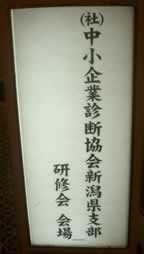 (社)中小企業診断協会新潟県支部
研修会 会場